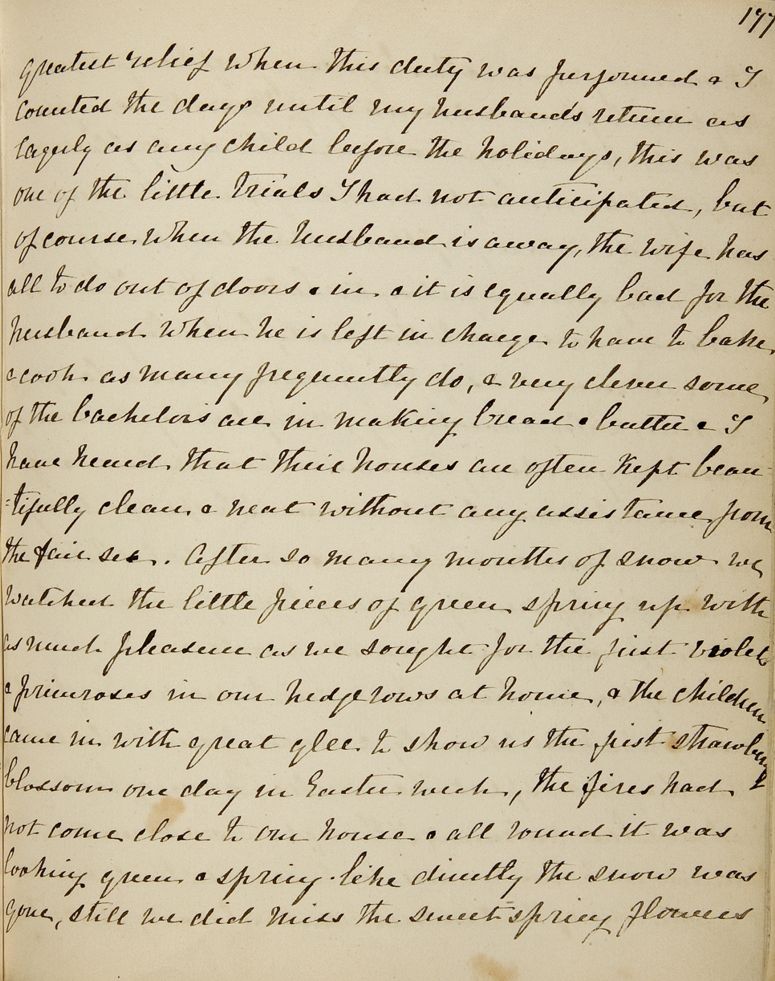 177
greatest relief when this duty was performed & I
counted the days until my husband's return as
eagerly as any child before the holidays, this was
one of the little trials I had not anticipated, but
of course when the husband is away, the wife has
all to do out of doors & in & it is equally bad for the
husband when he is left in charge to have to bake
& cook as many frequently do, & very clever some
of the bachelors are in making bread & butter & I
have heard that their houses are often kept beau-
=tifully clean & neat without any assistance from
the fair sex. After so many months of snow we
watched the little pieces of green spring up with
as much pleasure as we sought for the first violets
& primroses in our hedgerows at home, & the children
came in with great glee to show us the first strawberry
blossom one day in Easter week, the fires had
not come close to our house & all round it was
looking green & spring-like directly the snow was
gone, still we did miss the sweet spring flowers